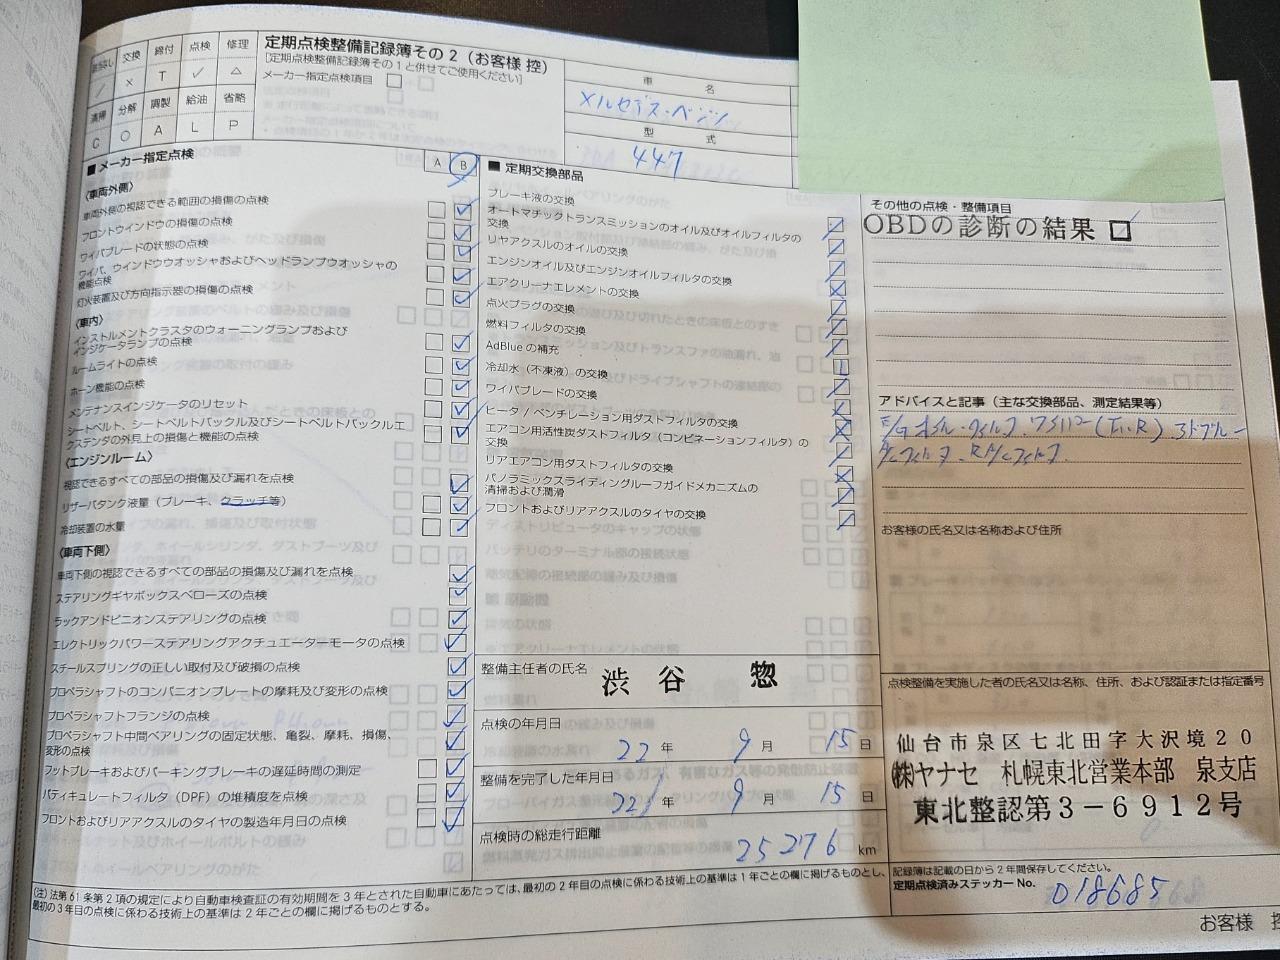 交換 締付 点検 修理
× T ✓ △
清掃 分解 調製 給油 省略
C ○ A L P
定期点検整備記録簿その2（お客様 控）
[定期点検整備記録簿その1と併せてご使用ください]
メーカー指定点検項目 □
車名
メルセデス・ベンツ
型式
447
■メーカー指定点検 A B
〈車両外側〉
車両外側の視認できる範囲の損傷の点検
フロントウインドウの損傷の点検
ワイパブレードの状態の点検
ワイパ、ウインドウウオッシャおよびヘッドランプウオッシャの
機能点検
灯火装置及び方向指示器の損傷の点検
〈車内〉
インストルメントクラスタのウォーニングランプおよび
インジケータランプの点検
ルームライトの点検
ホーン機能の点検
メンテナンスインジケータのリセット
シートベルト、シートベルトバックル及びシートベルトバックルエ
クステンダの外見上の損傷と機能の点検
〈エンジンルーム〉
視認できるすべての部品の損傷及び漏れを点検
リザーバタンク液量（ブレーキ、クラッチ等）
冷却装置の水量
〈車両下側〉
車両下側の視認できるすべての部品の損傷及び漏れを点検
ステアリングギヤボックスベローズの点検
ラックアンドピニオンステアリングの点検
エレクトリックパワーステアリングアクチュエーターモータの点検
スチールスプリングの正しい取付及び破損の点検
プロペラシャフトのコンパニオンプレートの摩耗及び変形の点検
プロペラシャフトフランジの点検
プロペラシャフト中間ベアリングの固定状態、亀裂、摩耗、損傷、
変形の点検
フットブレーキおよびパーキングブレーキの遅延時間の測定
パティキュレートフィルタ（DPF）の堆積度を点検
フロントおよびリアアクスルのタイヤの製造年月日の点検
■定期交換部品
ブレーキ液の交換
オートマチックトランスミッションのオイル及びオイルフィルタの
交換
リヤアクスルのオイルの交換
エンジンオイル及びエンジンオイルフィルタの交換
エアクリーナエレメントの交換
点火プラグの交換
燃料フィルタの交換
AdBlueの補充
冷却水（不凍液）の交換
ワイパブレードの交換
ヒータ/ベンチレーション用ダストフィルタの交換
エアコン用活性炭ダストフィルタ（コンビネーションフィルタ）の
交換
リアエアコン用ダストフィルタの交換
パノラミックスライディングルーフガイドメカニズムの
清掃および潤滑
フロントおよびリアアクスルのタイヤの交換
整備主任者の氏名 渋谷 惣
点検の年月日
22年 9月 15日
整備を完了した年月日
22年 9月 15日
点検時の総走行距離
25276 km
その他の点検・整備項目
OBDの診断の結果 □
アドバイスと記事（主な交換部品、測定結果等）
お客様の氏名又は名称および住所
点検整備を実施した者の氏名又は名称、住所、および認証または指定番号
仙台市泉区七北田字大沢境20
㈱ヤナセ 札幌東北営業本部 泉支店
東北整認第3-6912号
記録簿は記載の日から2年間保存してください。
定期点検済みステッカーNo. 018685
(注)法第61条第2項の規定により自動車検査証の有効期間を3年とされた自動車にあたっては、最初の2年目の点検に係わる技術上の基準は1年ごとの欄に掲げるものとし、
最初の3年目の点検に係わる技術上の基準は2年ごとの欄に掲げるものとする。
お客様 控